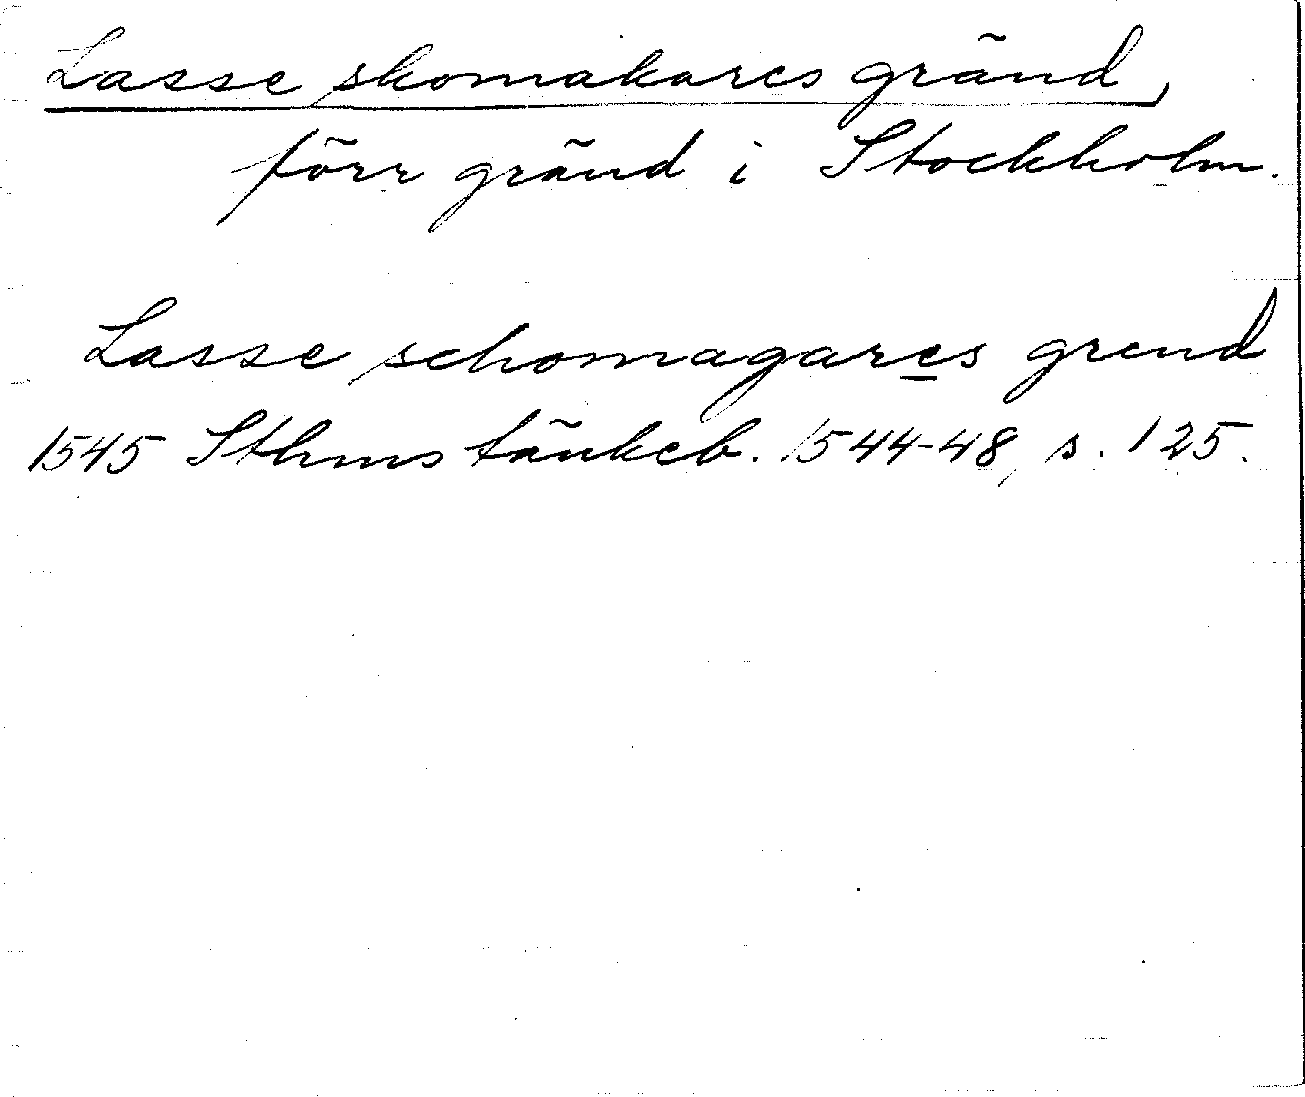 Lasse skomakares gränd,
förr gränd i Stockholm.
Lasse schomagares grend
1545 Sthms tänkeb. 1544-48, s. 125.